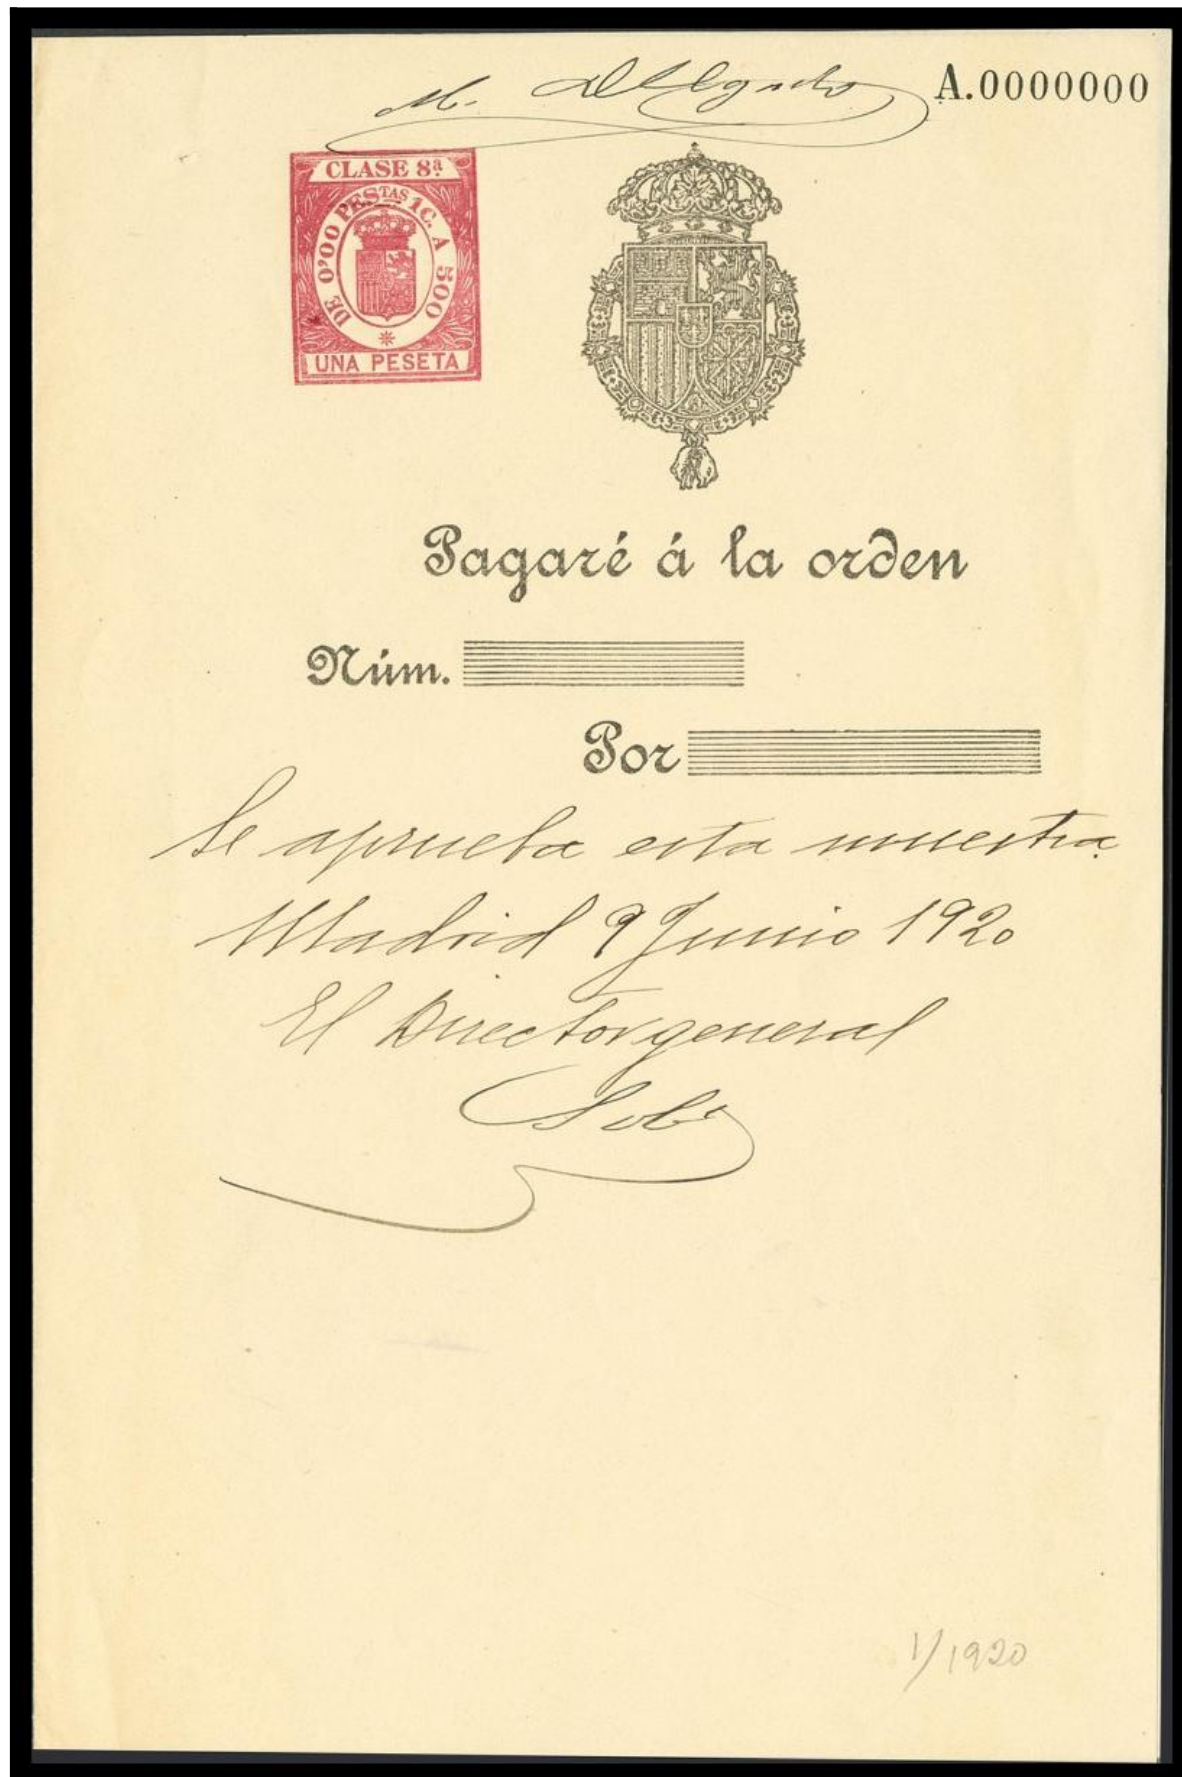 M. Delgado
A.0000000
CLASE 8ª
DE 0'00 PESTAS 1C. A 500
UNA PESETA
Pagaré á la orden
Núm.
Por
Se aprueba esta muestra
Madrid 9 Junio 1920
El Director general
1/1920